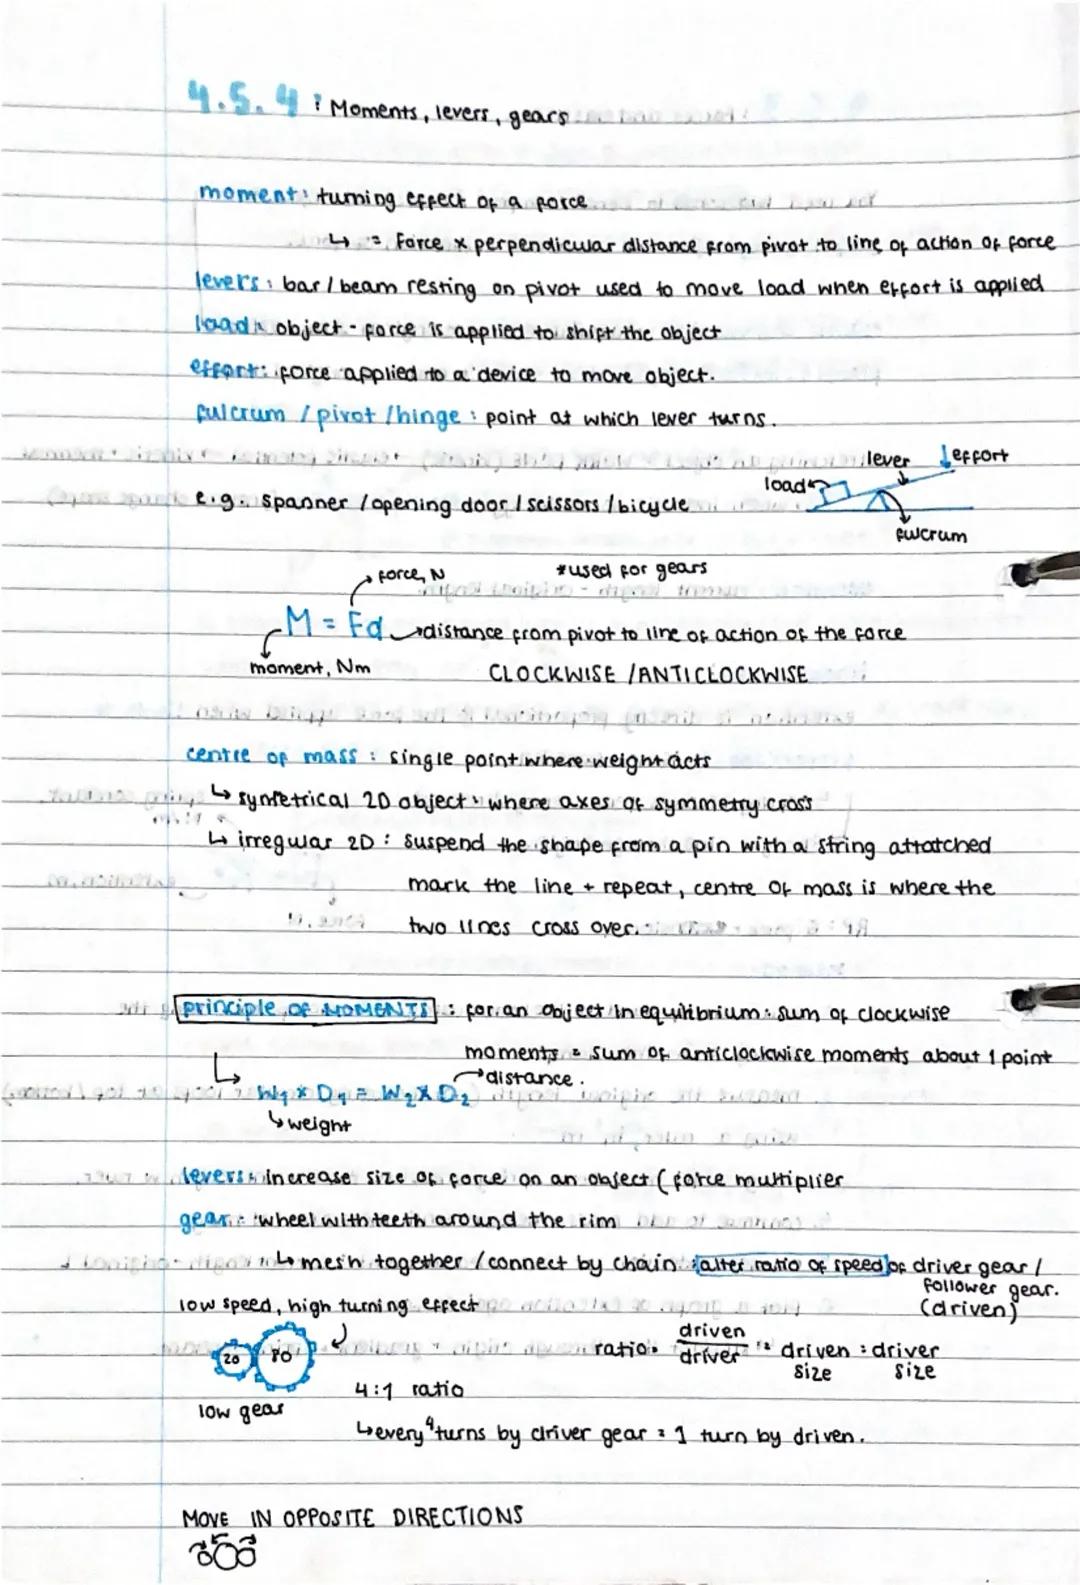 4.5.4 : Moments, levers, gears
moment: turning effect of a force
↳ = Force x perpendicular distance from pivot to line of action of force
levers : bar / beam resting on pivot used to move load when effort is applied
load: object - force is applied to shift the object
effort: force applied to a device to move object.
fulcrum / pivot / hinge : point at which lever turns.
lever ↓effort
load
e.g. spanner / opening door / scissors / bicycle
fulcrum
force, N *used for gears
M = Fd →distance from pivot to line of action of the force
moment, Nm CLOCKWISE / ANTICLOCKWISE
centre of mass : single point where weight acts
↳ symmetrical 2D object : where axes of symmetry cross
↳ irregular 2D : suspend the shape from a pin with a string attatched
mark the line + repeat, centre of mass is where the
two lines cross over.
principle of MOMENTS : for an object in equilibrium : sum of clockwise
moments = sum of anticlockwise moments about 1 point
→distance.
↳ W1 x D1 = W2 x D2
↳weight
levers: increase size of force on an object ( force multiplier
gear : wheel with teeth around the rim
↳ mesh together / connect by chain : alter ratio of speed of driver gear /
follower gear.
(driven)
low speed, high turning effect
20 80
ratio = driven/driver = driven size : driver size
4:1 ratio
low gear
↳every 4 turns by driver gear = 1 turn by driven.
MOVE IN OPPOSITE DIRECTIONS